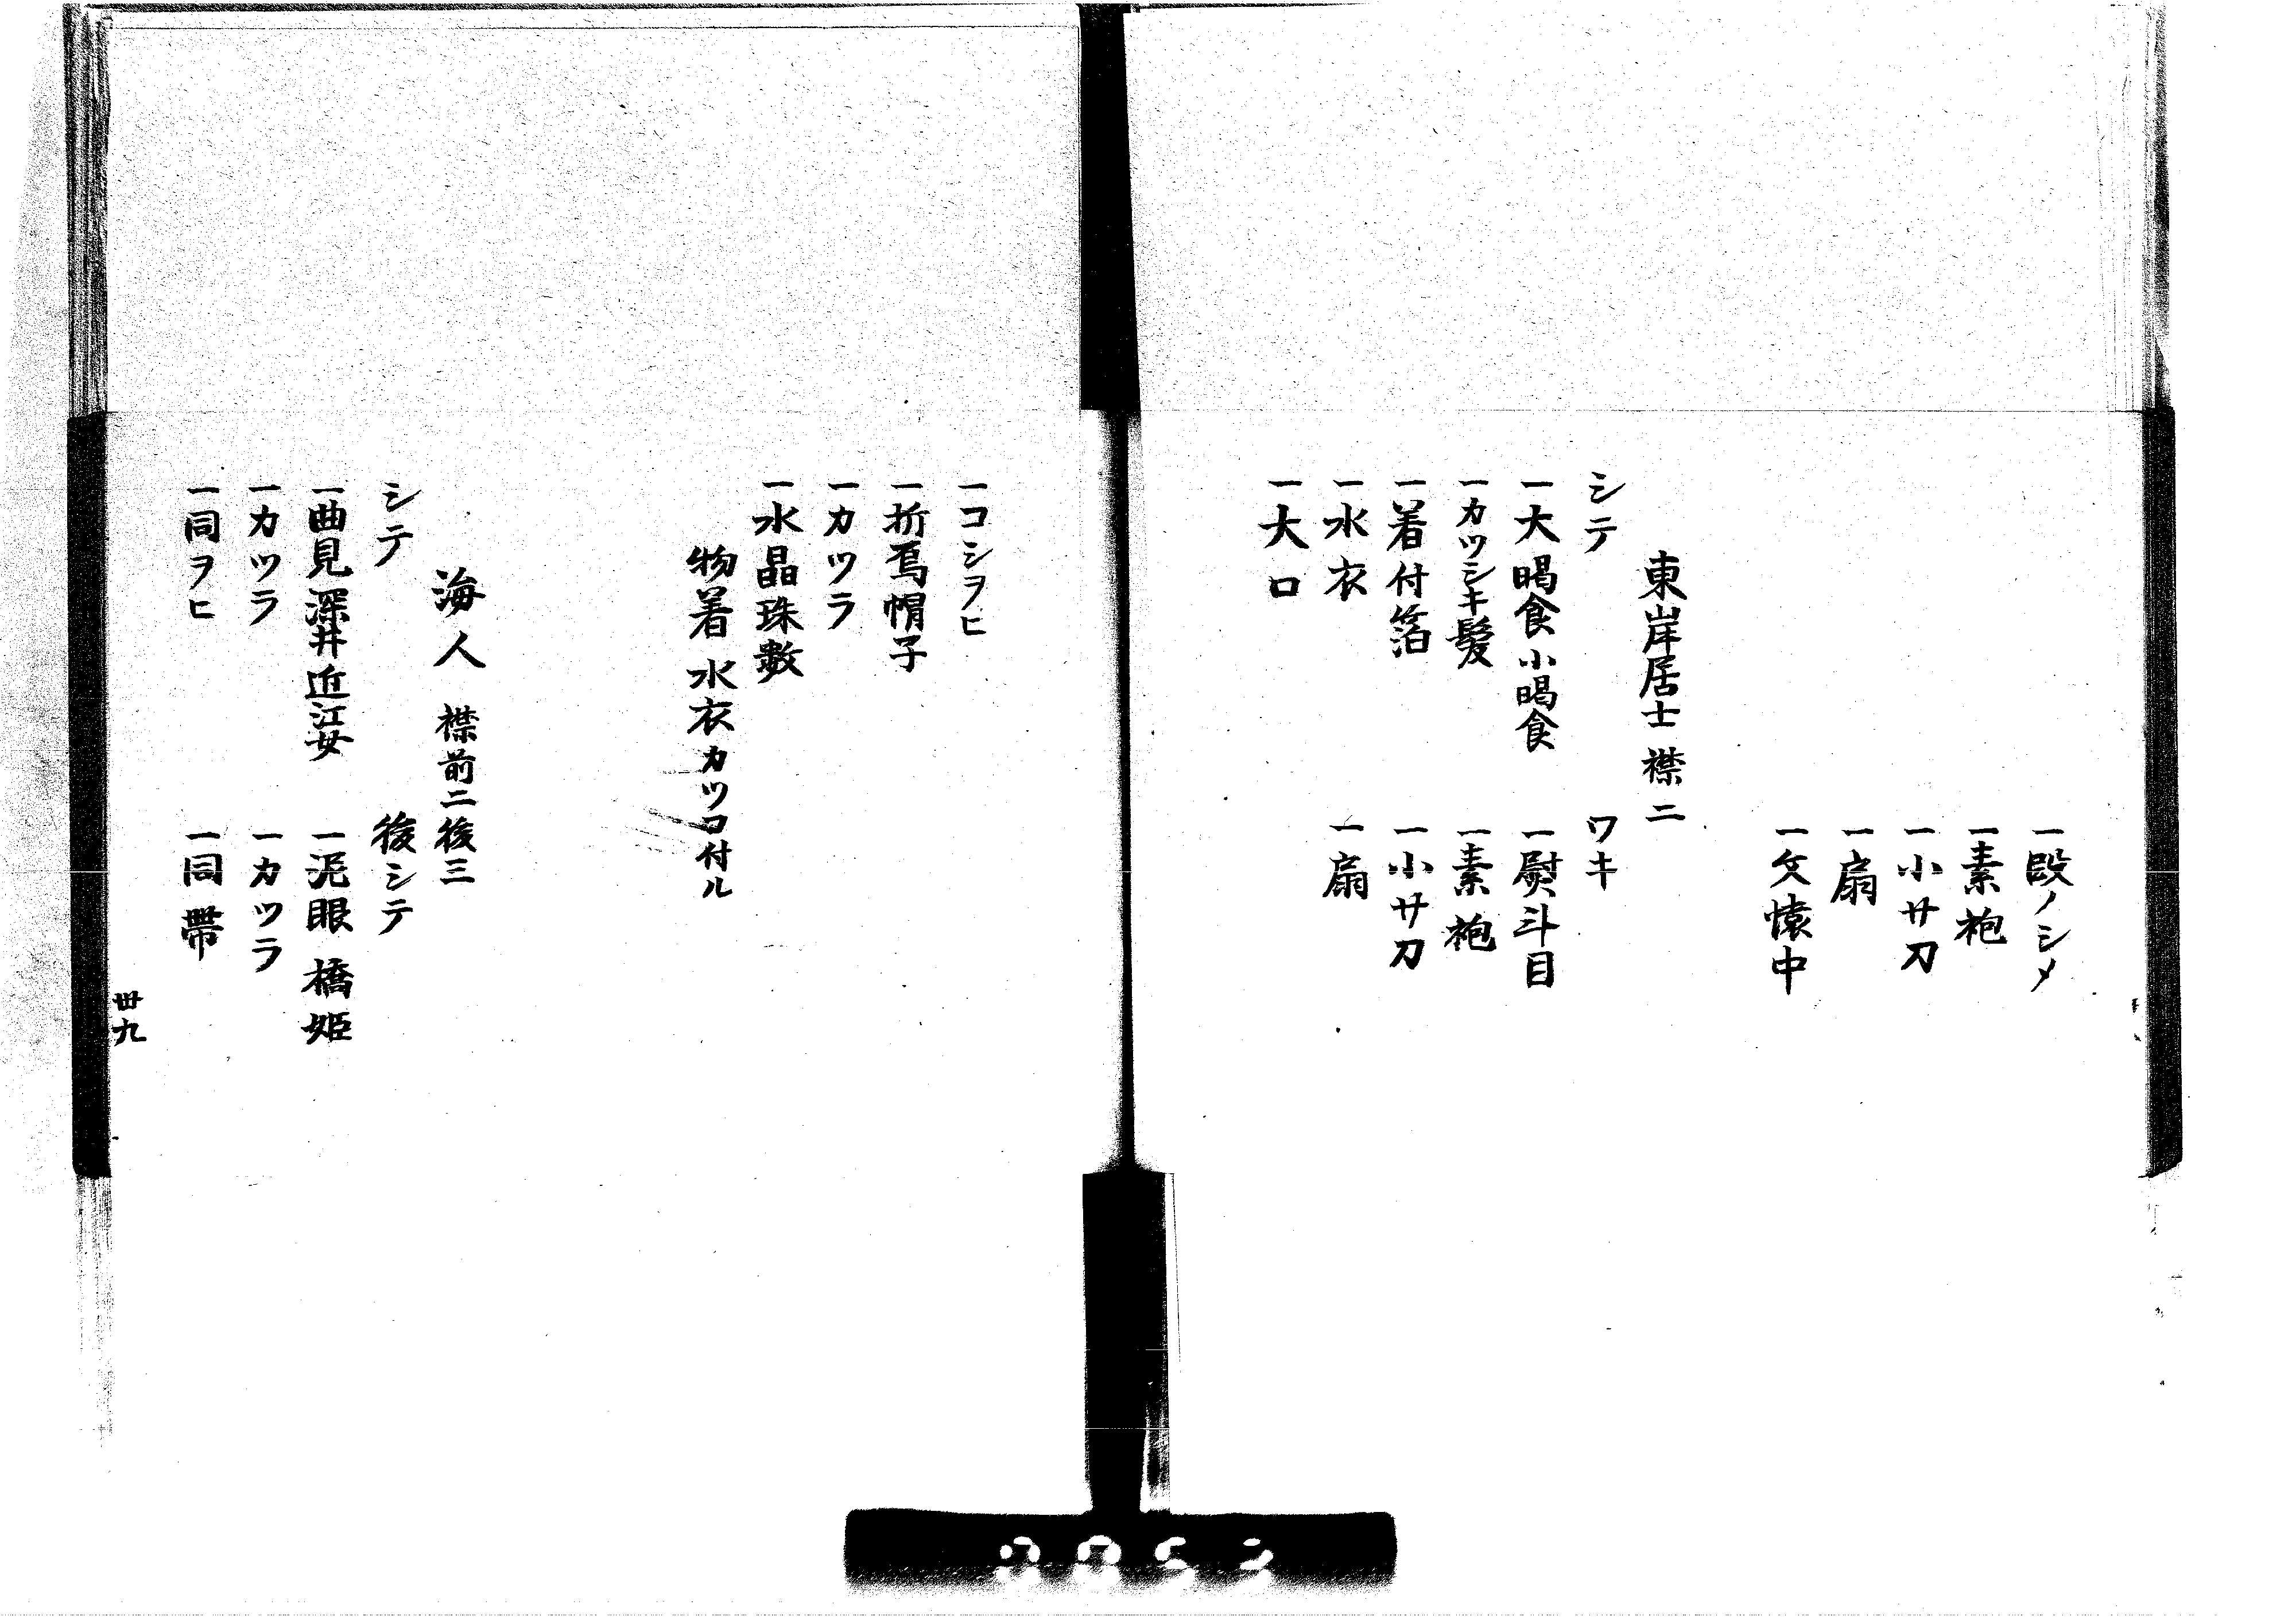 一段ノシメ
一素袍
一小サ刀
一扇
一文懐中
東岸居士 襟二
シテ
ワキ
一大喝食小喝食
一熨斗目
一カツシキ髪
一素袍
一着付箔
一小サ刀
一水衣
一扇
一大口
一コシヲヒ
一折烏帽子
一カツラ
一水晶珠数
物着水衣カツコ付ル
海人 襟前二後三
シテ
後シテ
一曲見深井近江女
一泥眼橋姫
一カツラ
一カツラ
一同ヲヒ
一同帯
丗九